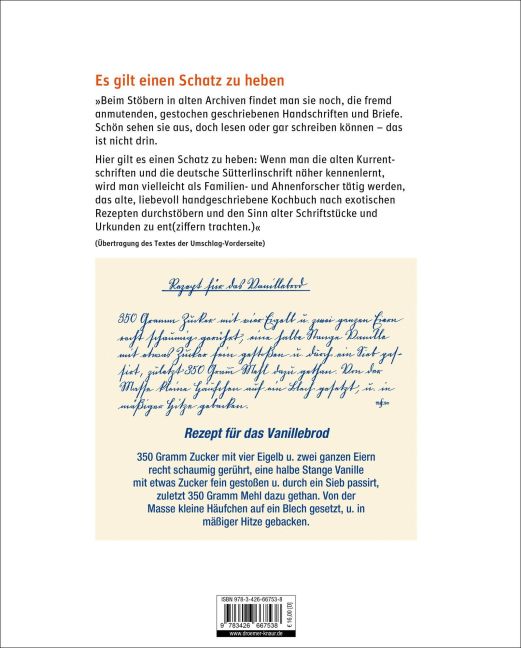 Es gilt einen Schatz zu heben
»Beim Stöbern in alten Archiven findet man sie noch, die fremd
anmutenden, gestochen geschriebenen Handschriften und Briefe.
Schön sehen sie aus, doch lesen oder gar schreiben können – das
ist nicht drin.
Hier gilt es einen Schatz zu heben: Wenn man die alten Kurrent-
schriften und die deutsche Sütterlinschrift näher kennenlernt,
wird man vielleicht als Familien- und Ahnenforscher tätig werden,
das alte, liebevoll handgeschriebene Kochbuch nach exotischen
Rezepten durchstöbern und den Sinn alter Schriftstücke und
Urkunden zu ent(ziffern trachten.)«
(Übertragung des Textes der Umschlag-Vorderseite)
Rezept für das Vanillebrod
350 Gramm Zucker mit vier Eigelb u. zwei ganzen Eiern
recht schaumig gerührt, eine halbe Stange Vanille
mit etwas Zucker fein gestoßen u. durch ein Sieb pas-
sirt, zuletzt 350 Gramm Mehl dazu gethan. Von der
Masse kleine Häufchen auf ein Blech gesetzt, u. in
mäßiger Hitze gebacken.
Rezept für das Vanillebrod
350 Gramm Zucker mit vier Eigelb u. zwei ganzen Eiern
recht schaumig gerührt, eine halbe Stange Vanille
mit etwas Zucker fein gestoßen u. durch ein Sieb passirt,
zuletzt 350 Gramm Mehl dazu gethan. Von der
Masse kleine Häufchen auf ein Blech gesetzt, u. in
mäßiger Hitze gebacken.
ISBN 978-3-426-66753-8
9 783426 667538
€ 16,00 (D)
www.droemer-knaur.de